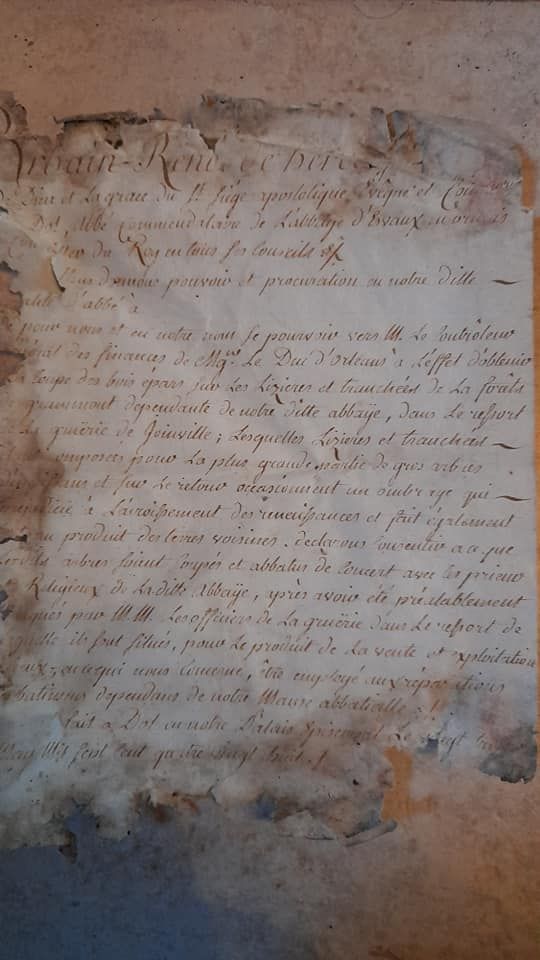 Urbain-René de herc
Dieu et La grace du St Siége apostolique Evêque et Comte
Dol abbé Commendataire de L'abbaye d'Evaux
Conseiller du Roy en tous ses Conseils &c
donnons pouvoir et procuration en notre ditte
d'abbé à
pour nous et en notre nom se pourvoir vers M. Le Contrôleur
des finances de Mgr Le Duc d'Orleans à L'effet d'obtenir
La Coupe des bois épars sur Les Lizieres et tranchées de La forêts
dependante de notre ditte abbaÿe, dans Le ressort
La gruërie de Joinville; Lesquelles Lizieres et tranchées
composées pour La plus grande partie de gros arbres
et sur Le retour occasionnent un ombrage qui
à L'acroissement des renaissances et fait également
au produit des terres voisines. declarons Consentir a ce que
arbres soient Coupés et abbatus de Concert avec les prieur
Religieux de La ditte Abbaÿe, après avoir été préalablement
par M.M. Les officiers de La gruërie dans Le ressort de
ils sont situés, pour Le produit de La vente et exploitation
en ce qui nous Concerne, être employé aux réparations
batimens dependans de notre Manse abbatialle
fait à Dol en notre Palais Episcopal Le vingt
Mil sept Cent quatre vingt huit